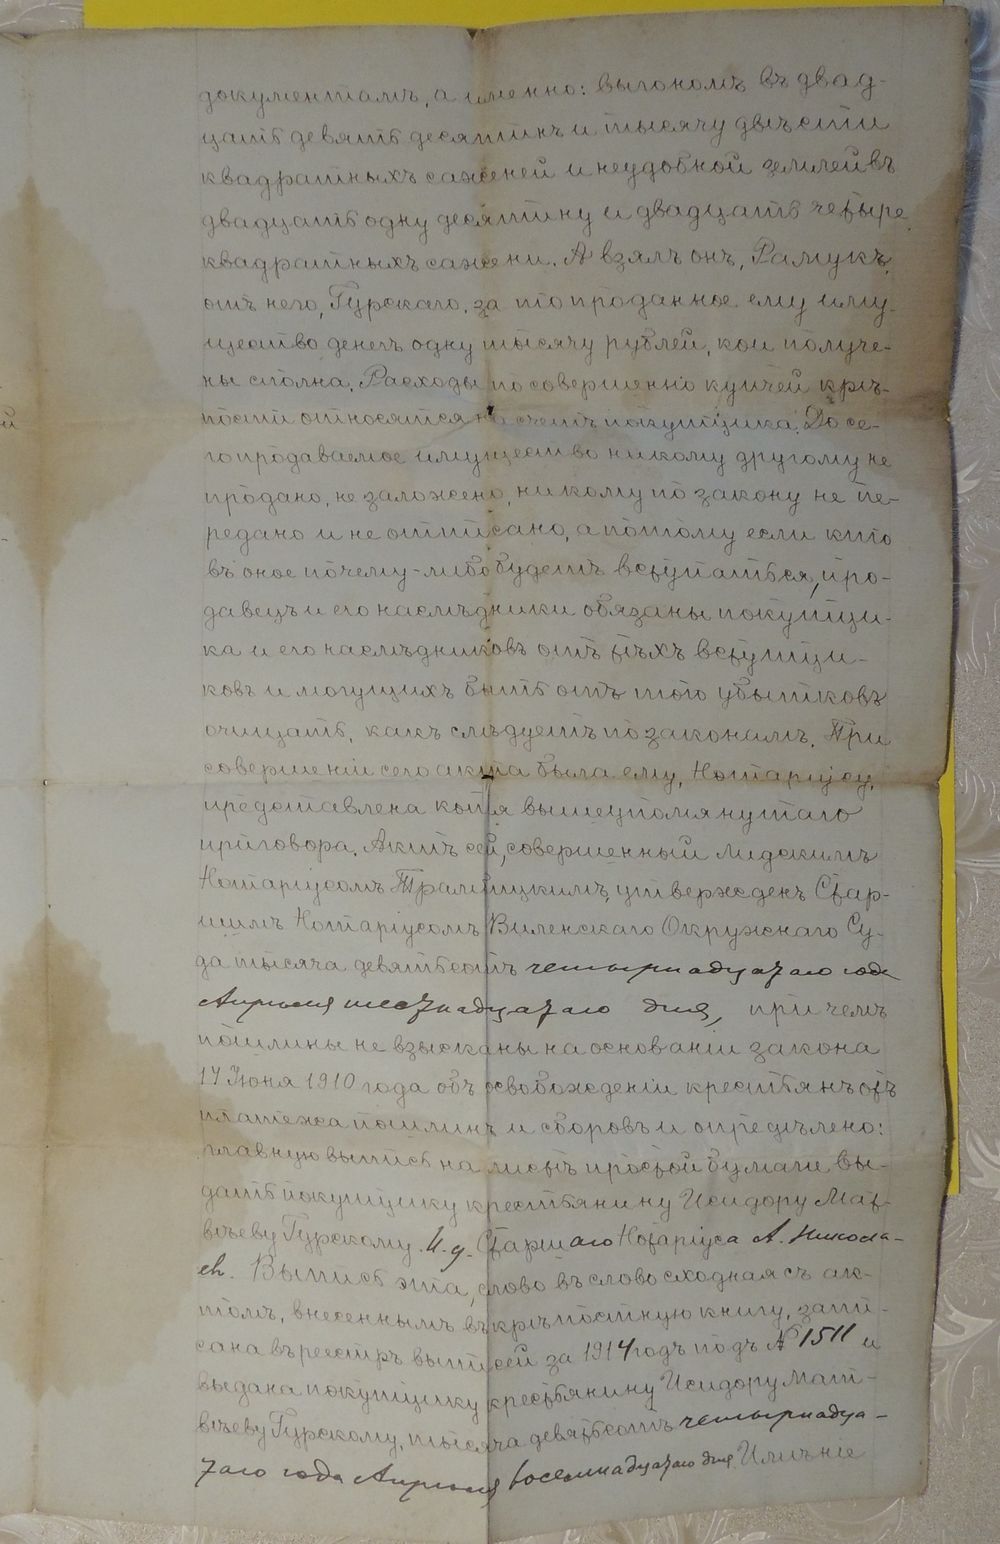 документамъ, а именно: выгономъ въ двад-
цать девять десятинъ и тысячу двѣсти
квадратныхъ саженей и неудобной землей въ
двадцать одну десятину и двадцать четыре
квадратныхъ сажени. А взялъ онъ, Рамукъ,
отъ него, Гурскаго, за то проданное ему иму-
щество денегъ одну тысячу рублей, кои получе-
ны сполна. Расходы по совершенію купчей крѣ-
пости относятся на счетъ покупщика. До се-
го продаваемое имущество никому другому не
продано, не заложено, никому по закону не пе-
редано и не отписано, а потому если кто
въ оное почему-либо будетъ вступаться, про-
давецъ и его наслѣдники обязаны покупщи-
ка и его наслѣдниковъ отъ тѣхъ вступщи-
ковъ и могущихъ быть отъ того убытковъ
очищать, какъ слѣдуетъ по законамъ. При
совершеніи сего акта была ему, Нотаріусу,
представлена копія вышеупомянутаго
приговора. Актъ сей, совершенный Лидскимъ
Нотаріусомъ утвержденъ Стар-
шимъ Нотаріусомъ Виленскаго Окружнаго Су-
да тысяча девятьсотъ четырнадцатаго года
Апрѣля шестнадцатаго дня, при чемъ
пошлины не взысканы на основаніи закона
17 Іюня 1910 года объ освобожденіи крестьянъ отъ
платежа пошлинъ и сборовъ и опредѣлено:
главную выпись на листѣ простой бумаги вы-
дать покупщику крестьянину Исидору Мат-
вѣеву Гурскому. И. д. Старшаго Нотаріуса А. Никола-
евъ. Выпись эта, слово въ слово сходная съ ак-
томъ, внесеннымъ въ крѣпостную книгу, запи-
сана въ реестръ выписей за 1914 годъ подъ № 1511 и
выдана покупщику крестьянину Исидору Мат-
вѣеву Гурскому, тысяча девятьсотъ четырнадца-
таго года Апрѣля восемнадцатаго дня. Имѣніе